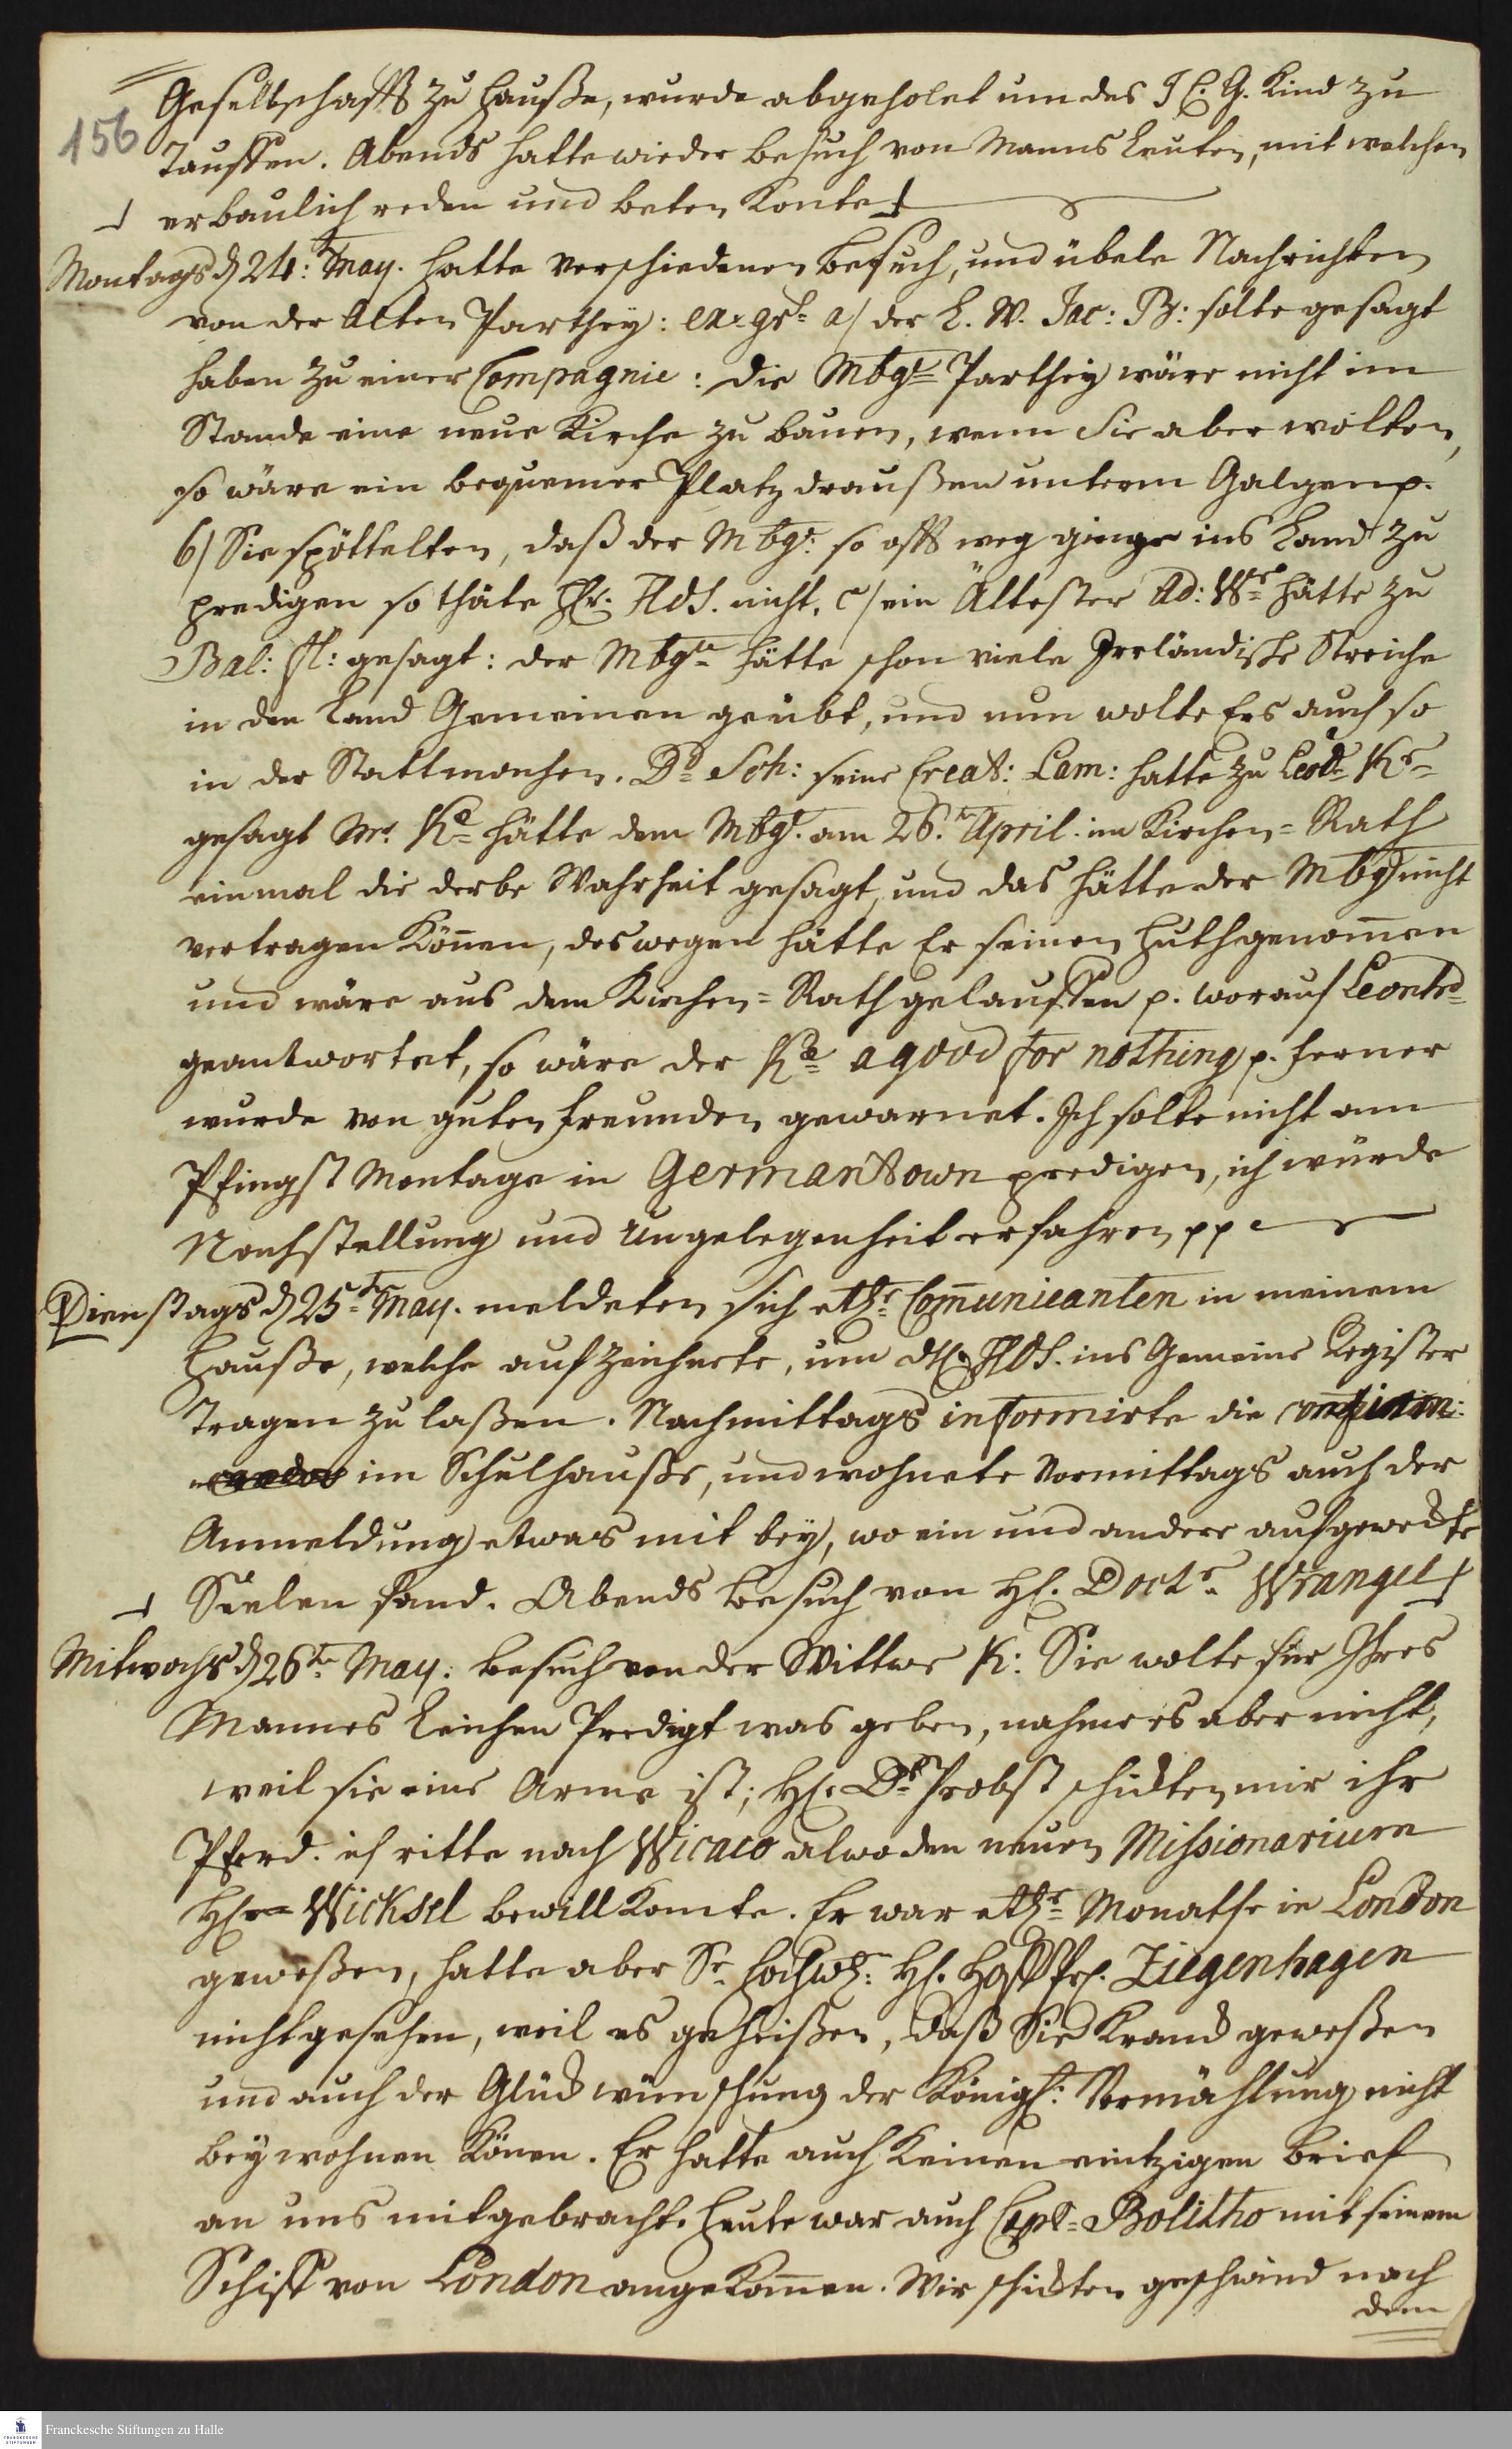 Gesellschafft zu Hauße, wurde abgeholet um des J C: G. Kind zu
156
Tauffen. Abends hatte wieder besuch von Manns Leuten, mit welchen
erbaulich reden und beten Konte
Montags d 24: May. hatte verschiedenen besuch, und übele Nachrichten
von der Alten Parthey: ex. gr. a/ der L. W. Jac: B: solte gesagt
haben zu einer Compagnie: die Mbgr Parthey wäre nicht im
Stande eine neue Kirche zu bauen, wenn Sie aber wolten,
so wäre ein bequemer Platz draußen unterm Galgen p.
b/ Sie spöttelten, daß der Mbgr. so offt weg ginge ins Land zu
predigen so thäte Hr: Hds. nicht. c/ ein Ältester Ad: Wr hätte zu
Bal: fl: gesagt: der Mbgr hätte schon viele Irrländische Streiche
in den Land Gemeinen geübt, und nun wolte Ers auch so
in der Statt machen. Dd Sch: seine Creat: Lam: hatte zu Leod Kr
gesagt Mr. Kr hätte dem Mbgr. am 26. April im Kirchen-Rath
einmal die derbe Wahrheit gesagt, und das hätte der Mbgr nicht
vertragen Können, deswegen hätte Er seinen Huth genom̄en
und wäre aus dem Kirchen-Rath gelauffen p. worauf Leonhd
geantwortet, so wäre der Kr a good for nothing p. ferner
wurde von guten freunden gewarnet. Ich solte nicht am
Pfingst Montage in Germantown predigen, ich würde
Nachstellung und Ungelegenheit erfahren pp
Dienstags d 25te May. meldeten sich etl. Com̄unicanten in meinem
Hauße, welche aufzeichnete, um dH. Hds. ins Gemeine Register
Tragen zu laßen. Nachmittags informirte die confirm:
im Schulhauße, und wohnete vormittags auch der
Anmeldung etwas mit bey, wo ein und andere aufgeweckte
Seelen fand. Abends besuch von H. Doctr. Wrangel
Mitwochs d 26te May: besuch von der Wittwe K: Sie wolte für Ihres
Mannes Leichen Predigt was geben, nahme es aber nicht,
weil sie eine Arme ist; H. Dr Probst schickten mir ihr
Pferd. ich ritte nach Wicaco alwo den neuen Missionarium
H. Wicksel bewill Komte. Er war etl. Monathe in London
geweßen, hatte aber Sr Hochw: H. Hoffpr. Ziegenhagen
nicht gesehen, weil es geheißen, daß Sie Kranck geweßen
und auch der Glückwünschung der Königl: Vermählung nicht
bey wohnen Könen. Er hatte auch Keinen eintzigen brief
an uns mitgebracht. Heute war auch Capt. Bolitho mit seinem
Schiff von London angekom̄en. Wir schickten geschwind nach
dem
Franckesche Stiftungen zu Halle